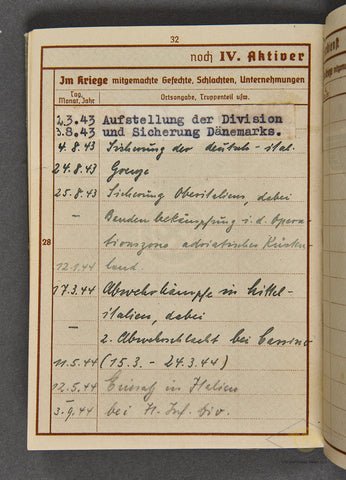 32
noch IV. Aktiver
Im Kriege mitgemachte Gefechte, Schlachten, Unternehmungen
Tag, Monat, Jahr
Ortsangabe, Truppenteil usw.
1.3.43 Aufstellung der Division
3.8.43 und Sicherung Dänemarks.
4.8.43 Sicherung der deutsch-ital.
24.8.43 Grenze
25.8.43 Sicherung Oberitaliens, dabei
– Bandenbekämpfung i. d. Opera-
28 tionszone adriatisches Küsten-
12.1.44 land.
17.3.44 Abwehrkämpfe in Mittel-
– italien, dabei
2. Abwehrschlacht bei Cassino
11.5.44 (15.3. - 24.3.44)
12.5.44 Einsatz in Italien
–
3.9.44 bei Inf. Div.